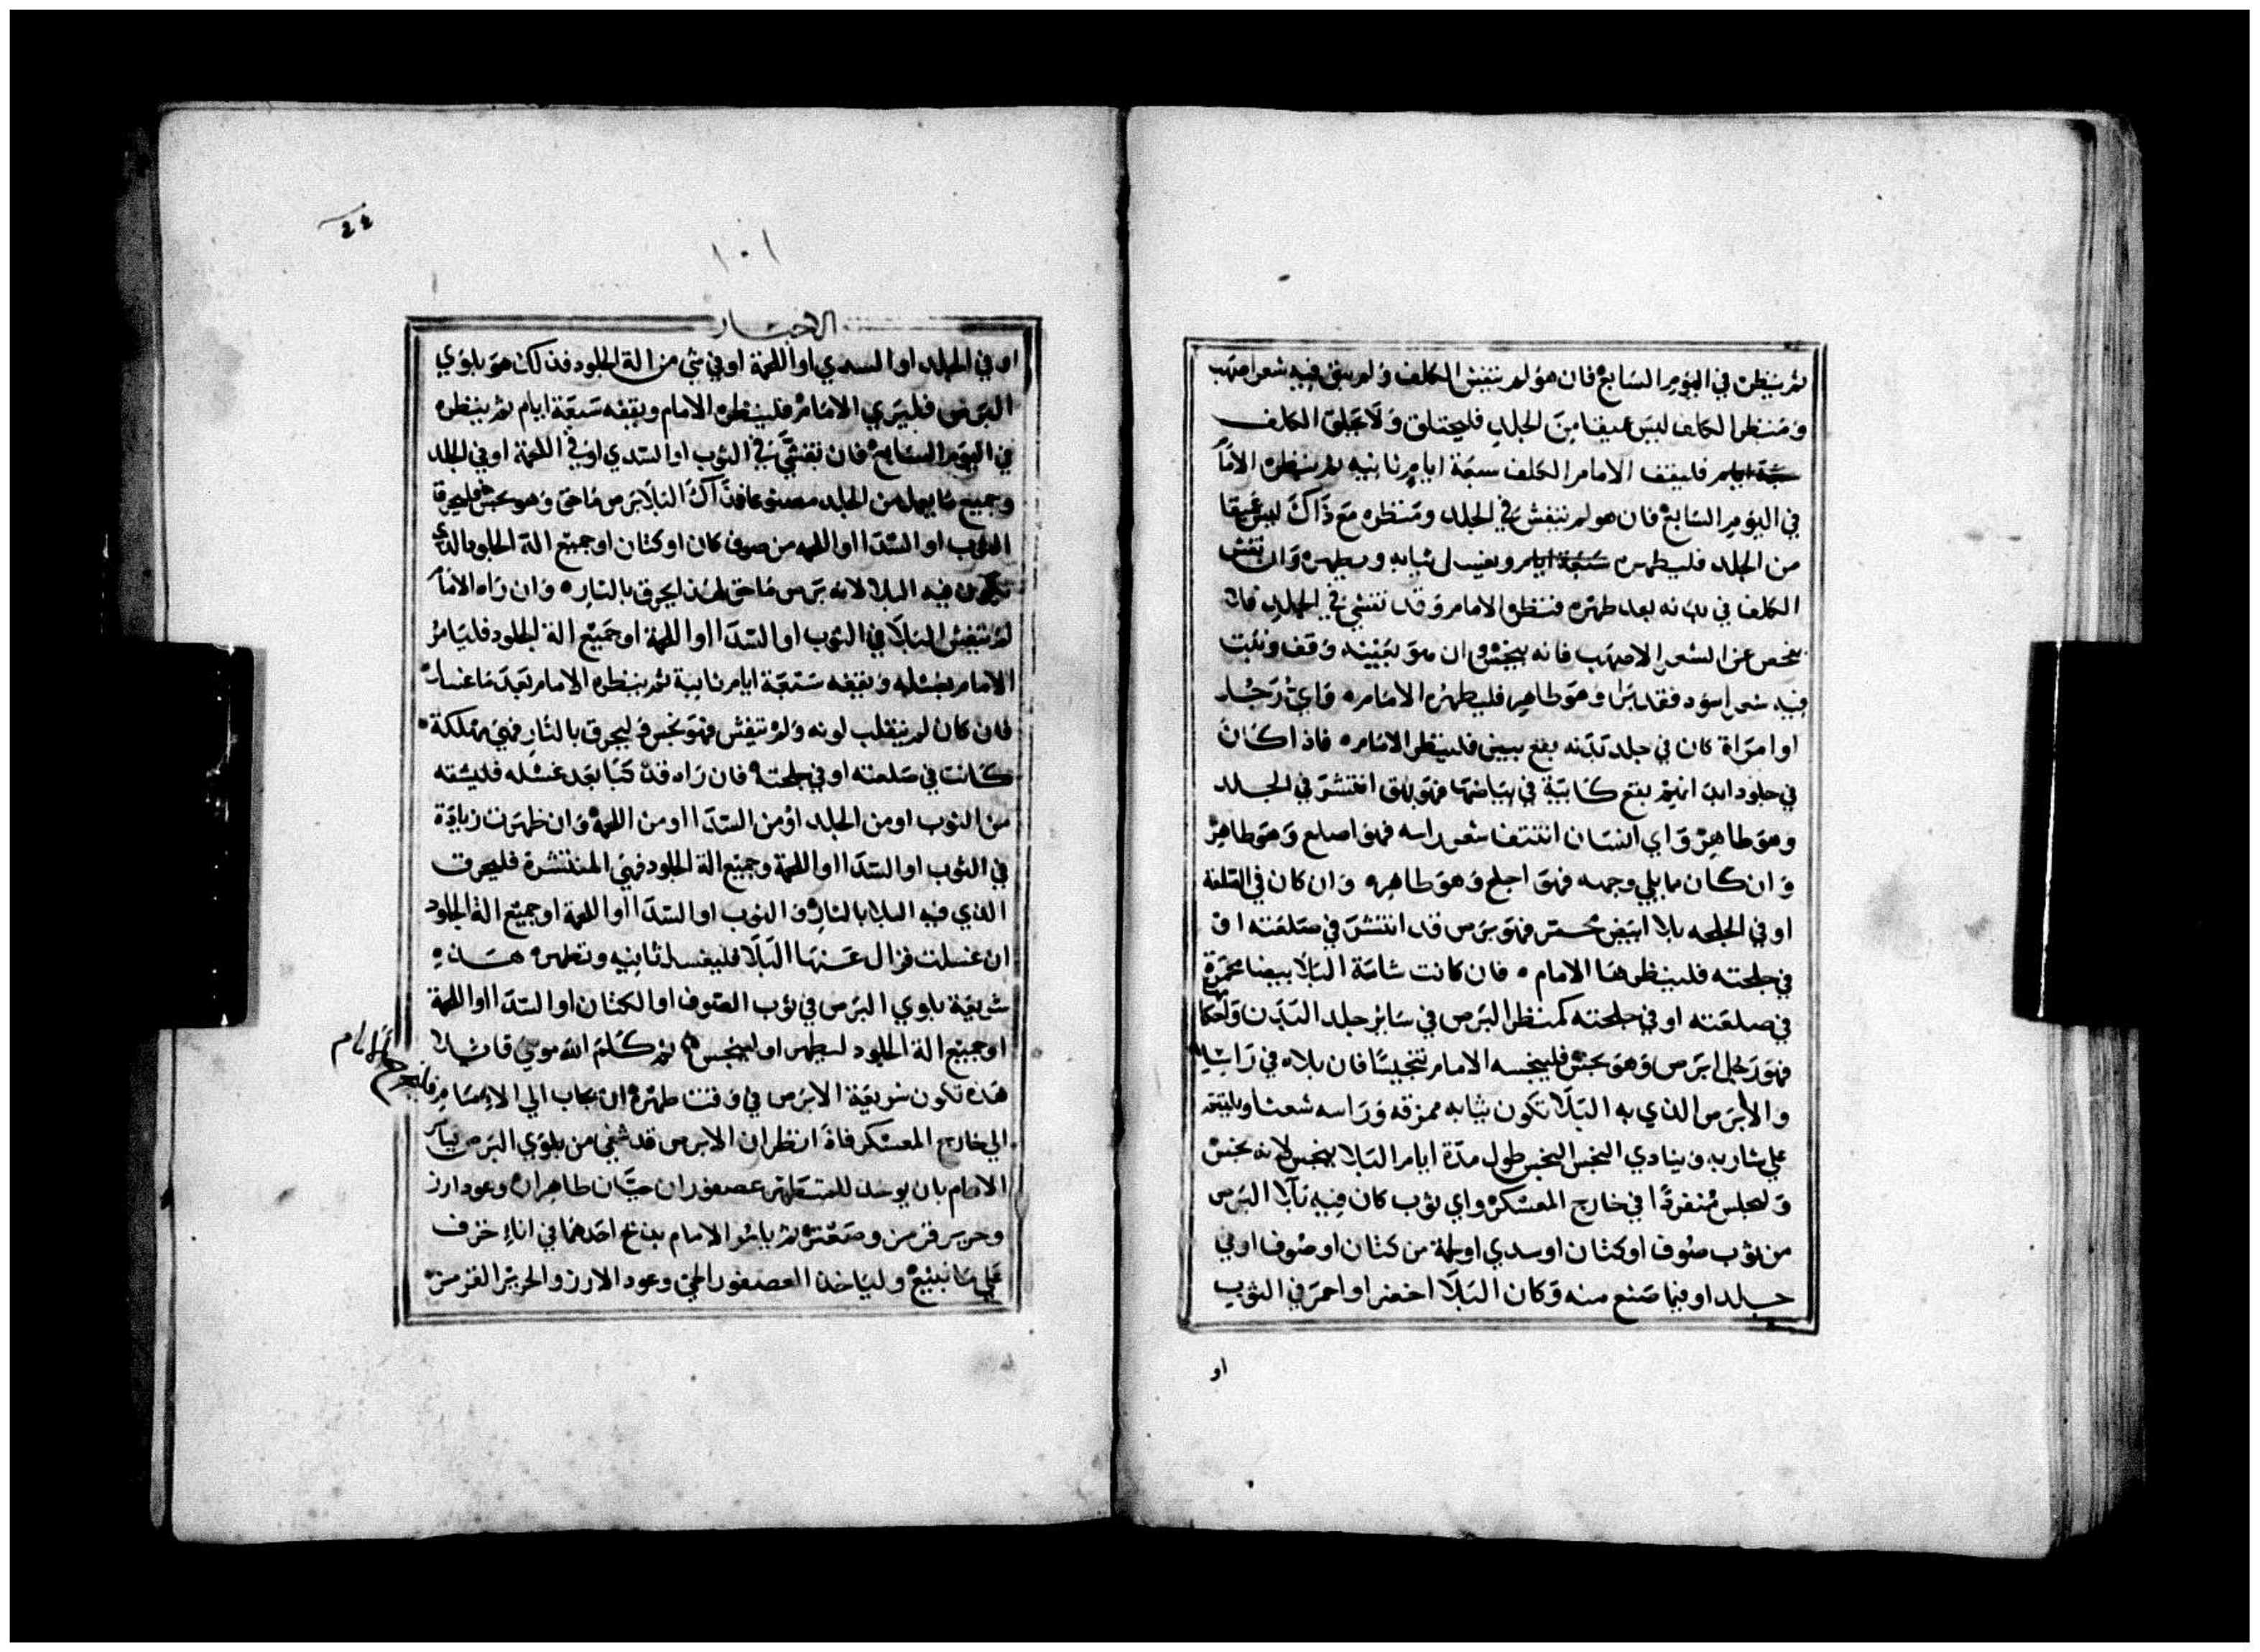 ثم ينظره في اليوم السابع فان هو لم يتفش الكلف ولم يبق فيه شعر اصهب
ومنظر الكلف ليس عميقا من الجلد فليحتلق ولا يحلق الكلف
فليقف الامام الكلف سبعة ايام ثانيه ثم ينظره الامام
في اليوم السابع فان هو لم يتفش في الجلد ومنظره مع ذاك ليس عميقا
من الجلد فليطهره سبعة ايام ويغسل ثيابه ويطهره وان تفشى
الكلف في بدنه بعد طهره فنظر الامام وقد تفشي في الجلد فلا
يفحص عن الشعر الاصهب فانه ينجس وان هو بعينه وقف ونبت
فيه شعر اسود فقد برا وهو طاهر فليطهره الامام ه واي رجل
او امراة كان في جلد بدنه بقع بيض فلينظر الامام ه فاذا كان
في جلود ابدانهم بقع كابية في بياضها فهو بهق انتشر في الجلد
وهو طاهر واي انسان انتتف شعر راسه فهو اصلع وهو طاهر
وان كان ما يلي وجهه فهو اجلح وهو طاهر ه وان كان في الصلعة
او في الجلحه بلا ابيض محمر فهو برص قد انتشر في صلعته او
في جلحته فلينظرها الامام ه فان كانت شامة البلا بيضا محمرة
في صلعته او في جلحته كمنظر البرص في ساير جلد البدن
فهو رجل ابرص وهو نجس فلينجسه الامام تنجيسا فان بلاه في راسه
والابرص الذي به البلا تكون ثيابه ممزقه وراسه شعثا ويلتثم
علي شاربه وينادي النجس النجس طول مدة ايام البلا ينجس لانه نجس
وليجلس منفردا في خارج المعسكر واي ثوب كان فيه بلا البرص
من ثوب صوف او كتان او سدي او لحمة من كتان او صوف او في
جلد او فيما صنع منه وكان البلا اخضر او احمر في الثوب
او
١٠١
الاحبار
او في الجلد او السدي او اللحمة او في شي من الة الجلود فذلك هو بلوي
البرص فليري الامام فلينظره الامام ويقفه سبعة ايام ثم ينظره
في اليوم السابع فان تفشي في الثوب او السدي او في اللحمة او في الجلد
وجميع ما يعمل من الجلد مصنوعا فذاك البلا برص ماحق وهو نجس فليحرقا
الثوب او السدا او اللحمه من صوف كان او كتان او جميع الة الجلود الذي
يكون فيه البلا لانه برص ماحق لهذا يحرق بالنار ه وان راه الامام
لم يتفش البلا في الثوب او السدا او اللحمة او جميع الة الجلود فليامر
الامام بغسله ويقفه سبعة ايام ثانية ثم ينظره الامام بعد ما غسل
فان كان لم ينقلب لونه ولم يتفش فهو نجس ليحرق بالنار فهي مهلكة
كانت في صلعته او في جلحته فان راه قد كبا بعد غسله فليشقه
من الثوب او من الجلد او من السدا او من اللحمة وان ظهرت زيادة
في الثوب او السدا او اللحمة وجميع الة الجلود فهي المنتشرة فليحرق
الذي فيه البلا بالنار والثوب او السدا او اللحمة او جميع الة الجلود
ان غسلت فزال عنها البلا فليغسل ثانيه وتطهر ه هذه
شريعة بلوي البرص في ثوب الصوف او الكتان او السدا او اللحمة
او جميع الة الجلود ليطهر او لينجس ه ثم كلم الله موسي قايلا
هذه تكون شريعة الابرص في وقت طهره ان يجاب الي الامام فليخرج الامام
الي خارج المعسكر فاذا نظر ان الابرص قد شفي من بلوي البرص يامر
الامام بان يوخذ للمتطهر عصفوران حيان طاهران وعود ارز
وحرير قرمز وصعتر ثم يامر الامام بذبح احدهما في اناء خزف
علي ما نبيع ولياخذ العصفور الحي وعود الارز والحرير القرمز